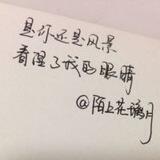 是你还是风景
看湿了我的眼睛
@陌上花满月